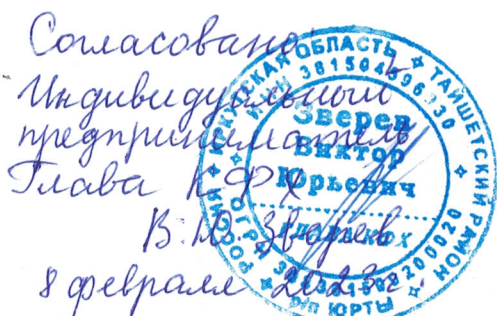 Согласовано:
Индивидуальный
предприниматель
Глава КФХ
В.Ю. Зверев
8 февраля 2023г.
ИРКУТСКАЯ ОБЛАСТЬ ТАЙШЕТСКИЙ РАЙОН
РОССИЯ
р/п ЮРТЫ
ИНН
ОГРН
Зверев
Виктор
Юрьевич
глава кфх